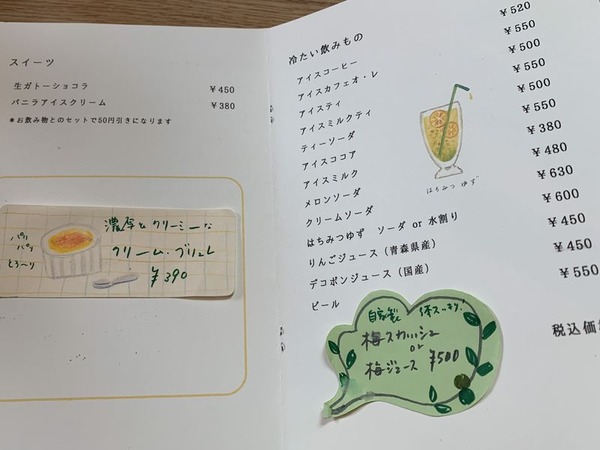 スイーツ
生ガトーショコラ ￥450
バニラアイスクリーム ￥380
*お飲み物とのセットで50円引きになります
濃厚でクリーミーな
パリ
パリ
とろ〜り
クリーム・ブリュレ
￥390
冷たい飲みもの
アイスコーヒー ￥520
アイスカフェオ・レ ￥550
アイスティ ￥500
アイスミルクティ ￥550
ティーソーダ ￥500
アイスココア ￥550
アイスミルク ￥380
メロンソーダ ￥480
クリームソーダ ￥630
はちみつゆず ソーダ or 水割り ￥600
りんごジュース（青森県産） ￥450
デコポンジュース（国産） ￥450
ビール ￥550
はちみつゆず
税込価
自家製 体スッキリ!
梅スカッシュ
or
梅ジュース ￥500